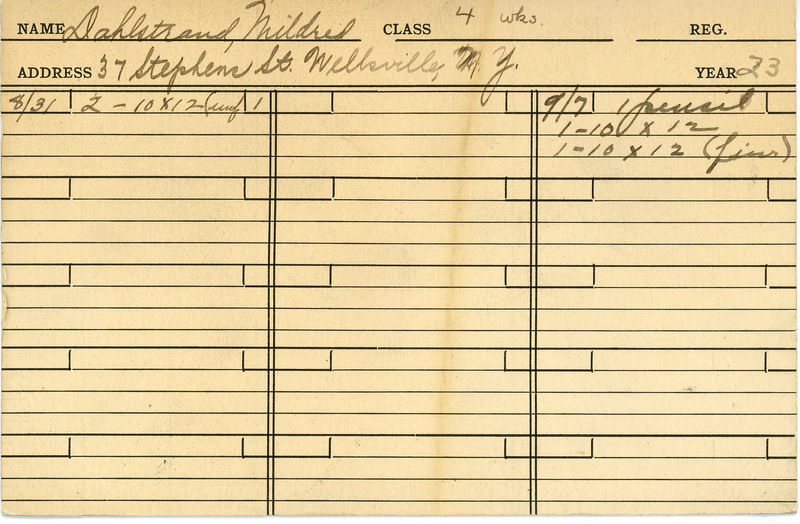 NAME Dahlstrand, Mildred CLASS 4 wks. REG.
ADDRESS 37 Stephens St. Wellsville, N. Y. YEAR 23
8/31 2 - 10 X 12 (unf 1 9/7 1 pensil
1-10 X 12
1-10 X 12 (fine)